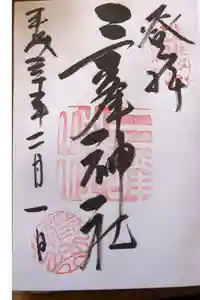 登拝
三峯神社
平成三十年二月一日